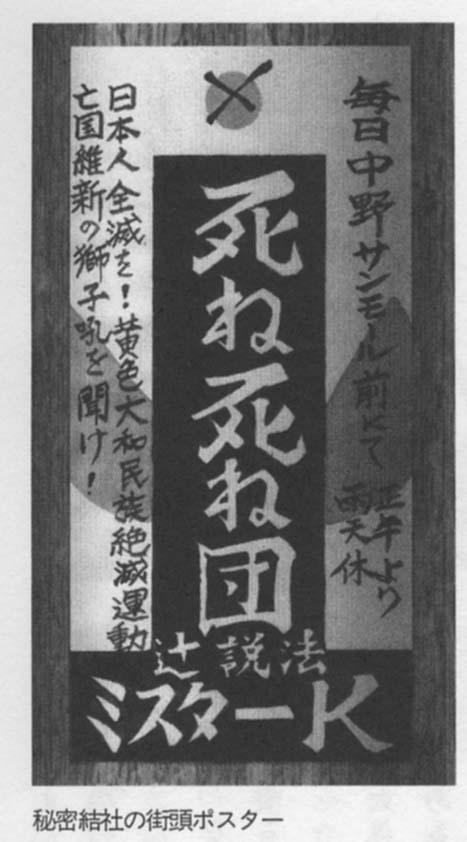 毎日中野サンモール前にて
正午より
雨天休
死ね死ね団
日本人全滅を！黄色大和民族絶滅運動
亡国維新の獅子吼を聞け！
辻説法
ミスターK
秘密結社の街頭ポスター